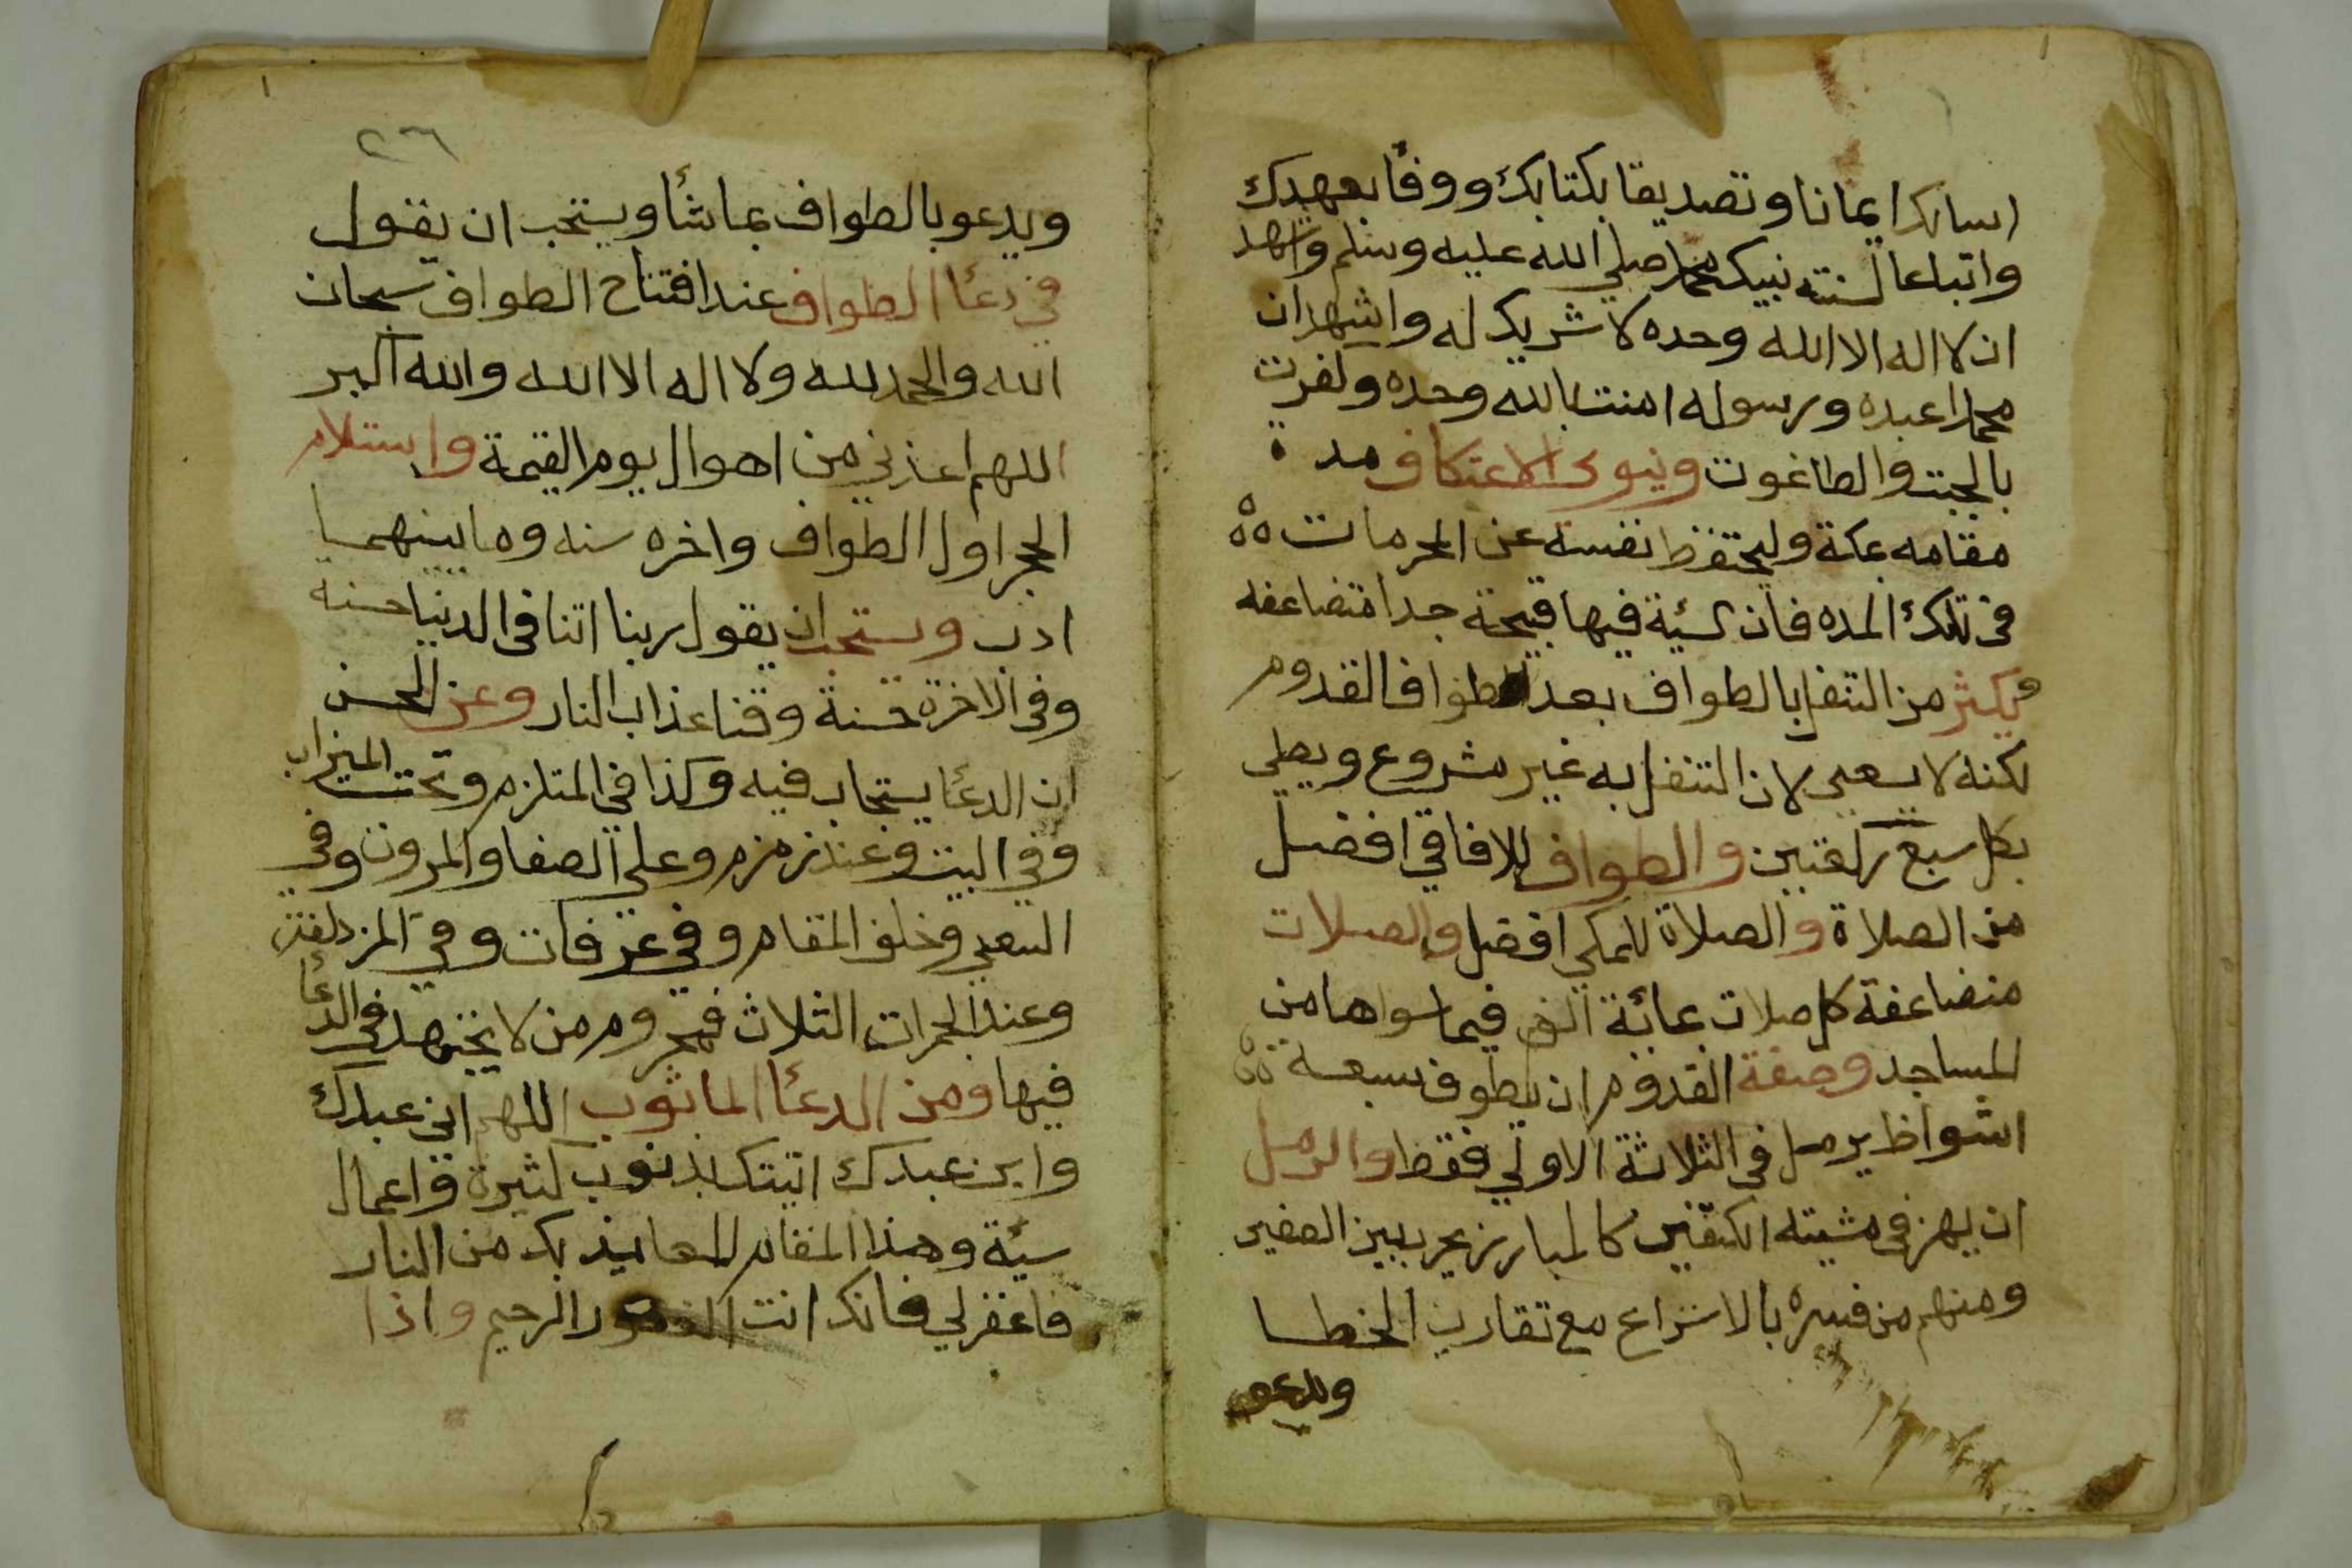 اسالك ايمانا وتصديقا بكتابك ووفا بعهدك
واتباعا لسنته نبيك محمد صلي الله عليه وسلم واشهد
ان لا اله الا الله وحده لا شريك له واشهد ان
محمدا عبده ورسوله امنت بالله وحده وكفرت
بالجبت والطاغوت وينوى الاعتكاف مدة
مقامه بمكة وليحتفظ نفسه عن المحرمات
فى تلك المده فان السئية فيها قبيحة جدا متضاعفه
ويكثر من التنفل بالطواف بعد طواف القدوم
لكنه لا يسعى لان التنفل به غير مشروع ويصلي
بكل سبع ركعتين والطواف للافاقي افضل
من الصلاة والصلاة للمكي افضل والصلات
متضاعفة كل صلات بمائة الف فيما سواها من
المساجد وصفة القدوم ان يطوف سبعة
اشواط يرمل في الثلاثة الاولي فقط والرمل
ان يهز في مشيته الكتفين كالمبارز بحرب بين الصفين
ومنهم من فسره بالاسراع مع تقارب الخطا
ويدعو
٢٦
ويدعو بالطواف بما شأ ويستحب ان يقول
في دعأ الطواف عند افتتاح الطواف سبحان
الله والحمد لله ولا اله الا الله والله اكبر
اللهم اعذني من اهوال يوم القيمة واستلام
الحجر اول الطواف واخره سنه وما بينهما
ادب ويستحب ان يقول ربنا اتنا في الدنيا حسنة
وفى الاخرة حسنة وقنا عذاب النار وعن الحسن
ان الدعأ يستجاب فيه وكذا في الملتزم وتحت الميزاب
وفي البيت وعند زمزم وعلى الصفا والمروة وفي
السعي وخلف المقام وفي عرفات وفي المزدلفة
وعند الجمرات الثلاث فمحروم من لا يجتهد في الدعأ
فيها ومن الدعأ الماثور اللهم اني عبدك
وابن عبدك اتيتك بذنوب كثيرة واعمال
سيئة وهذا المقام للعايذ بك من النار
فاغفر لي فانك انت الغفور الرحيم واذا